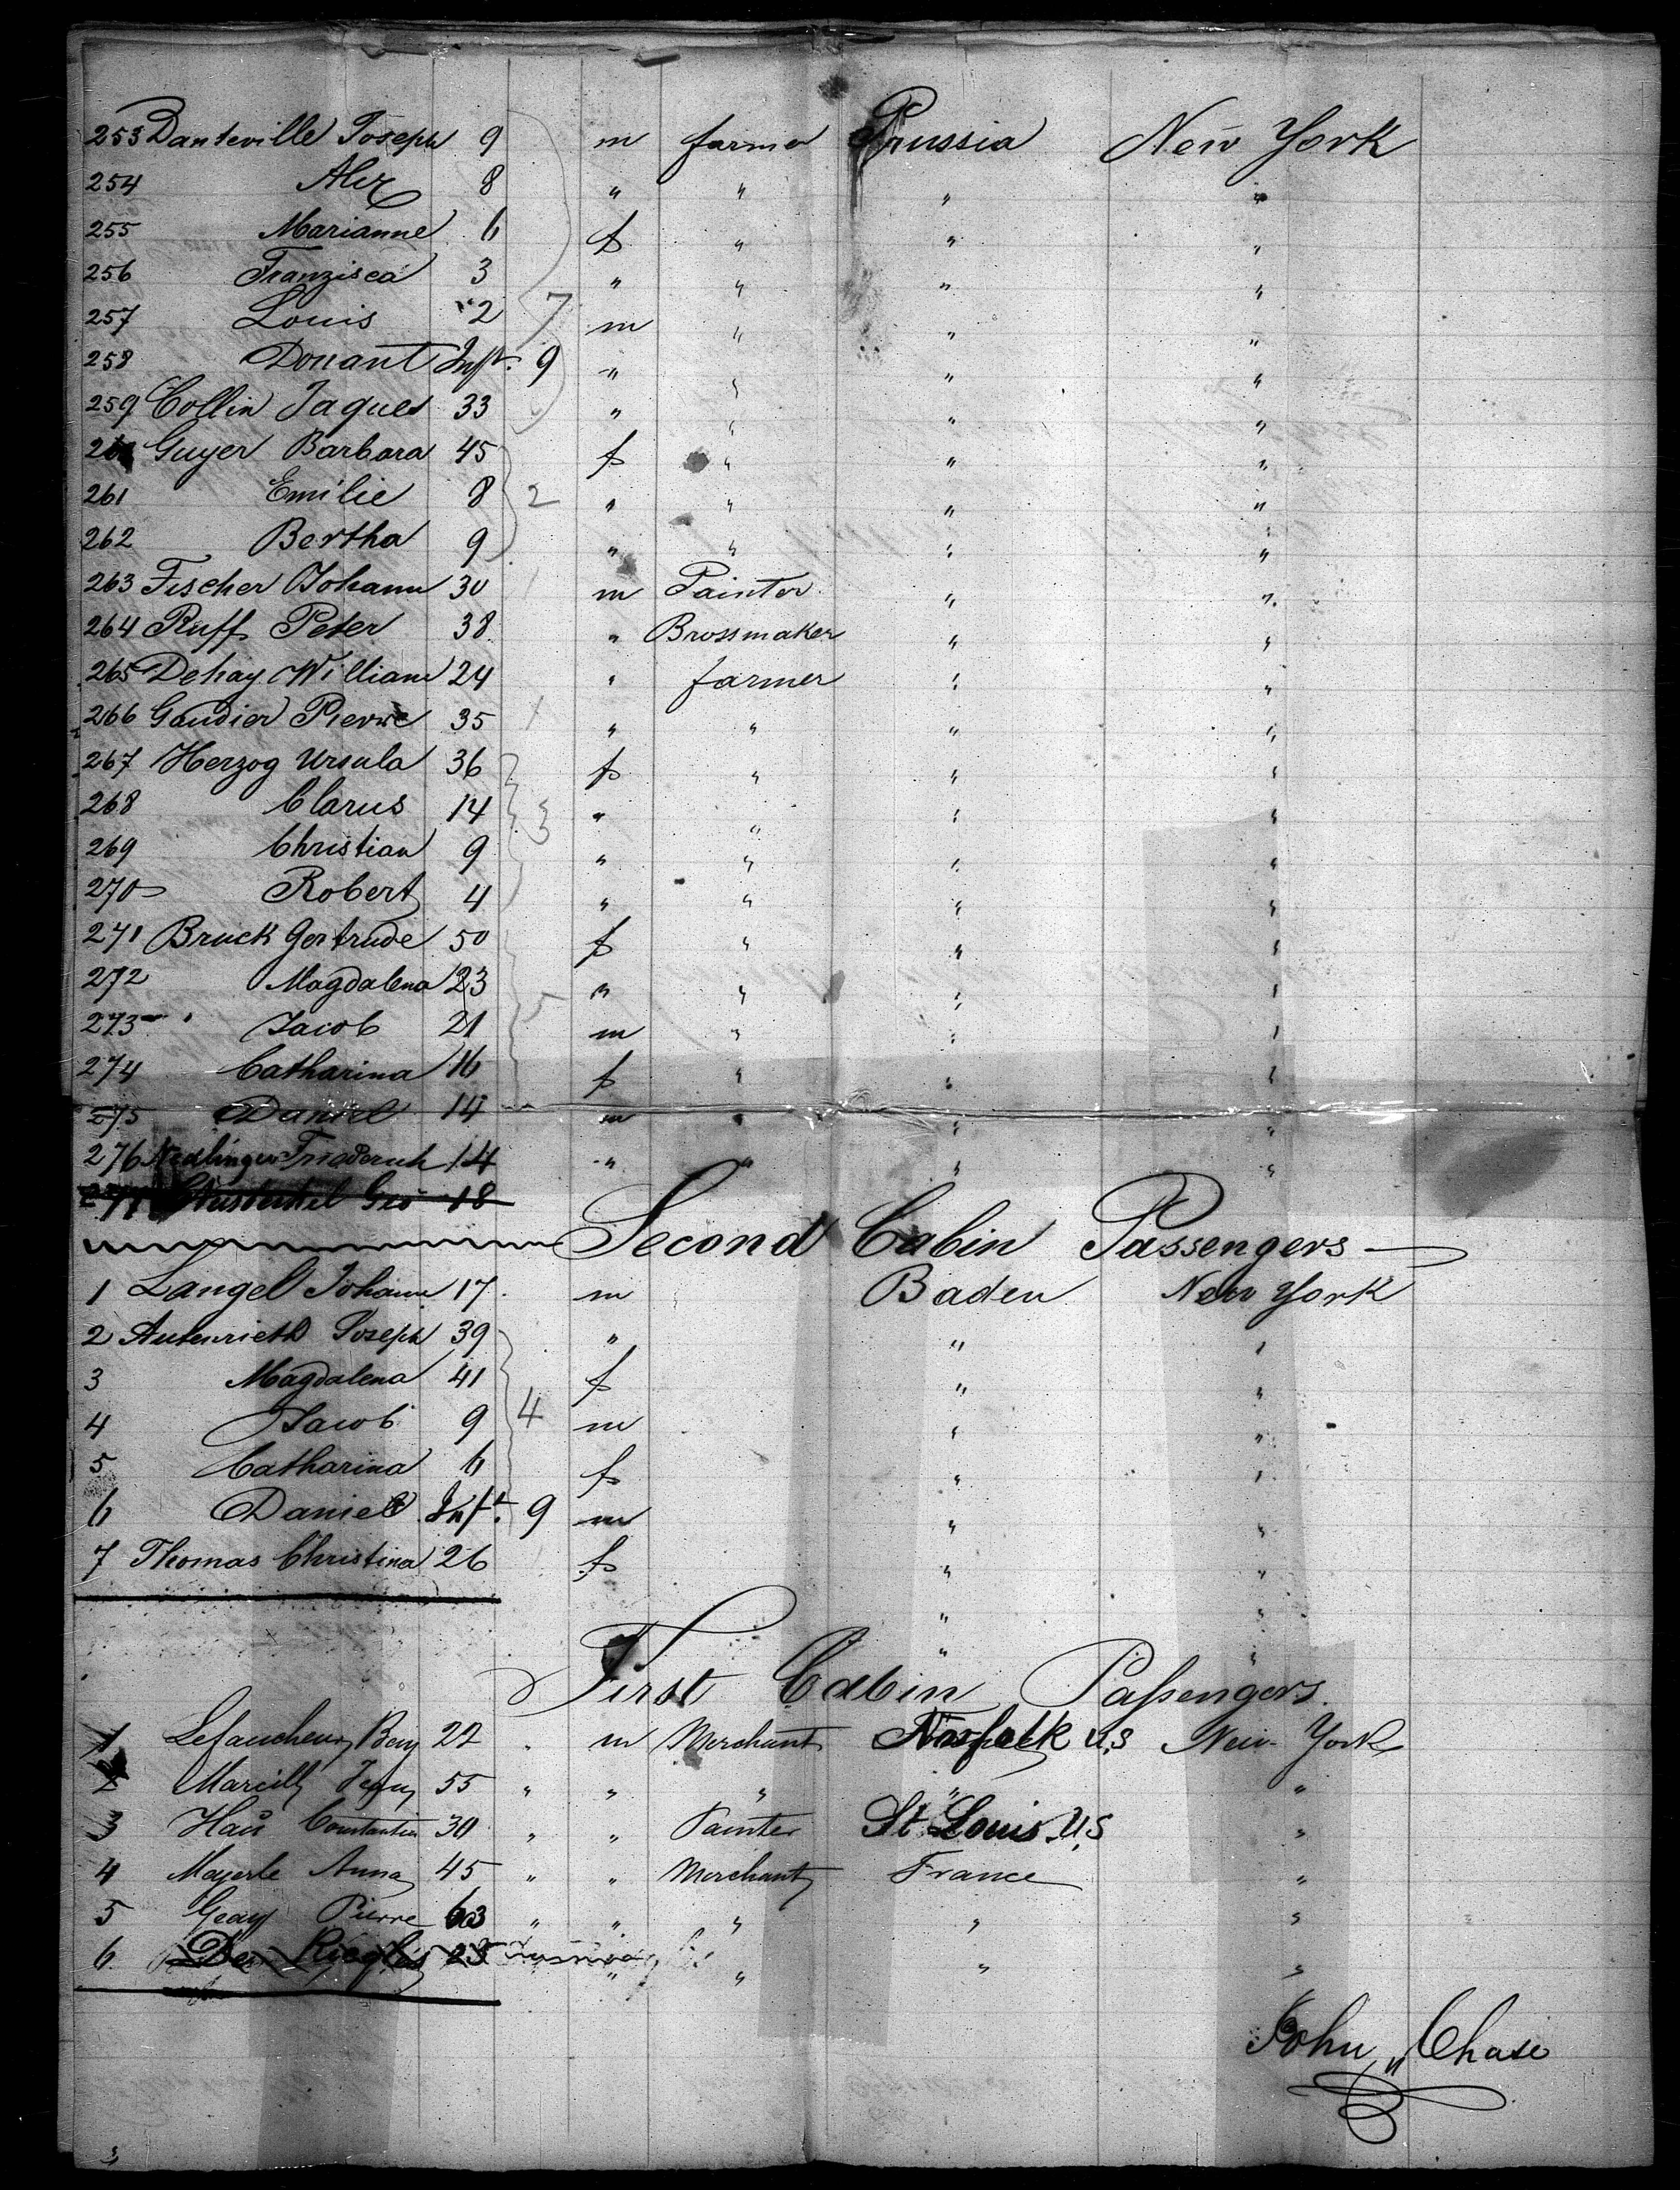 253 Danteville Joseph 9 m farmer Prussia New York
254 Alex 8 " " " "
255 Marianne 6 f " " "
256 Franzisca 3 " " " "
257 Louis 2 7 m " " "
258 Donant Inft. 9 " " " "
259 Collin Jaques 33 " " " "
260 Guyer Barbara 45 f " " "
261 Emilie 8 2 " " " "
262 Bertha 9 " " " "
263 Fischer Johann 30 1 m Painter " "
264 Ruff Peter 38 " Brossmaker " "
265 Dehay William 24 " farmer " "
266 Gaudier Pierre 35 1 " " " "
267 Herzog Ursula 36 f " " "
268 Clarus 14 3 " " " "
269 Christian 9 " " " "
270 Robert 4 " " " "
271 Bruck Gertrude 50 f " " "
272 Magdalena 23 5 " " " "
273 " Jacob 21 m " " "
274 Catharina 16 f " " "
275 Daniel 14 m " " "
276 Nedlinger Friederich 14 " " " "
277 Geo 18
Second Cabin Passengers
1 Langel Johann 17 m Baden New York
2 Autenrieth Joseph 39 " " "
3 Magdalena 41 f " "
4 Jacob 9 4 m " "
5 Catharina 6 f " "
6 Daniel Inft. 9 m " "
7 Thomas Christina 26 f " "
" "
" "
First Cabin Passengers.
1 Lefaucheux Benj 22 " m Merchant Norfolk U.S New York
2 Marcilly Jean 55 " " " " "
3 Haü Constantin 30 " " Painter St Louis U.S "
4 Mayerle Anna 45 " " Merchant France "
5 Geay Pierre 63 " " " " "
6 25 " " " "
John Chase